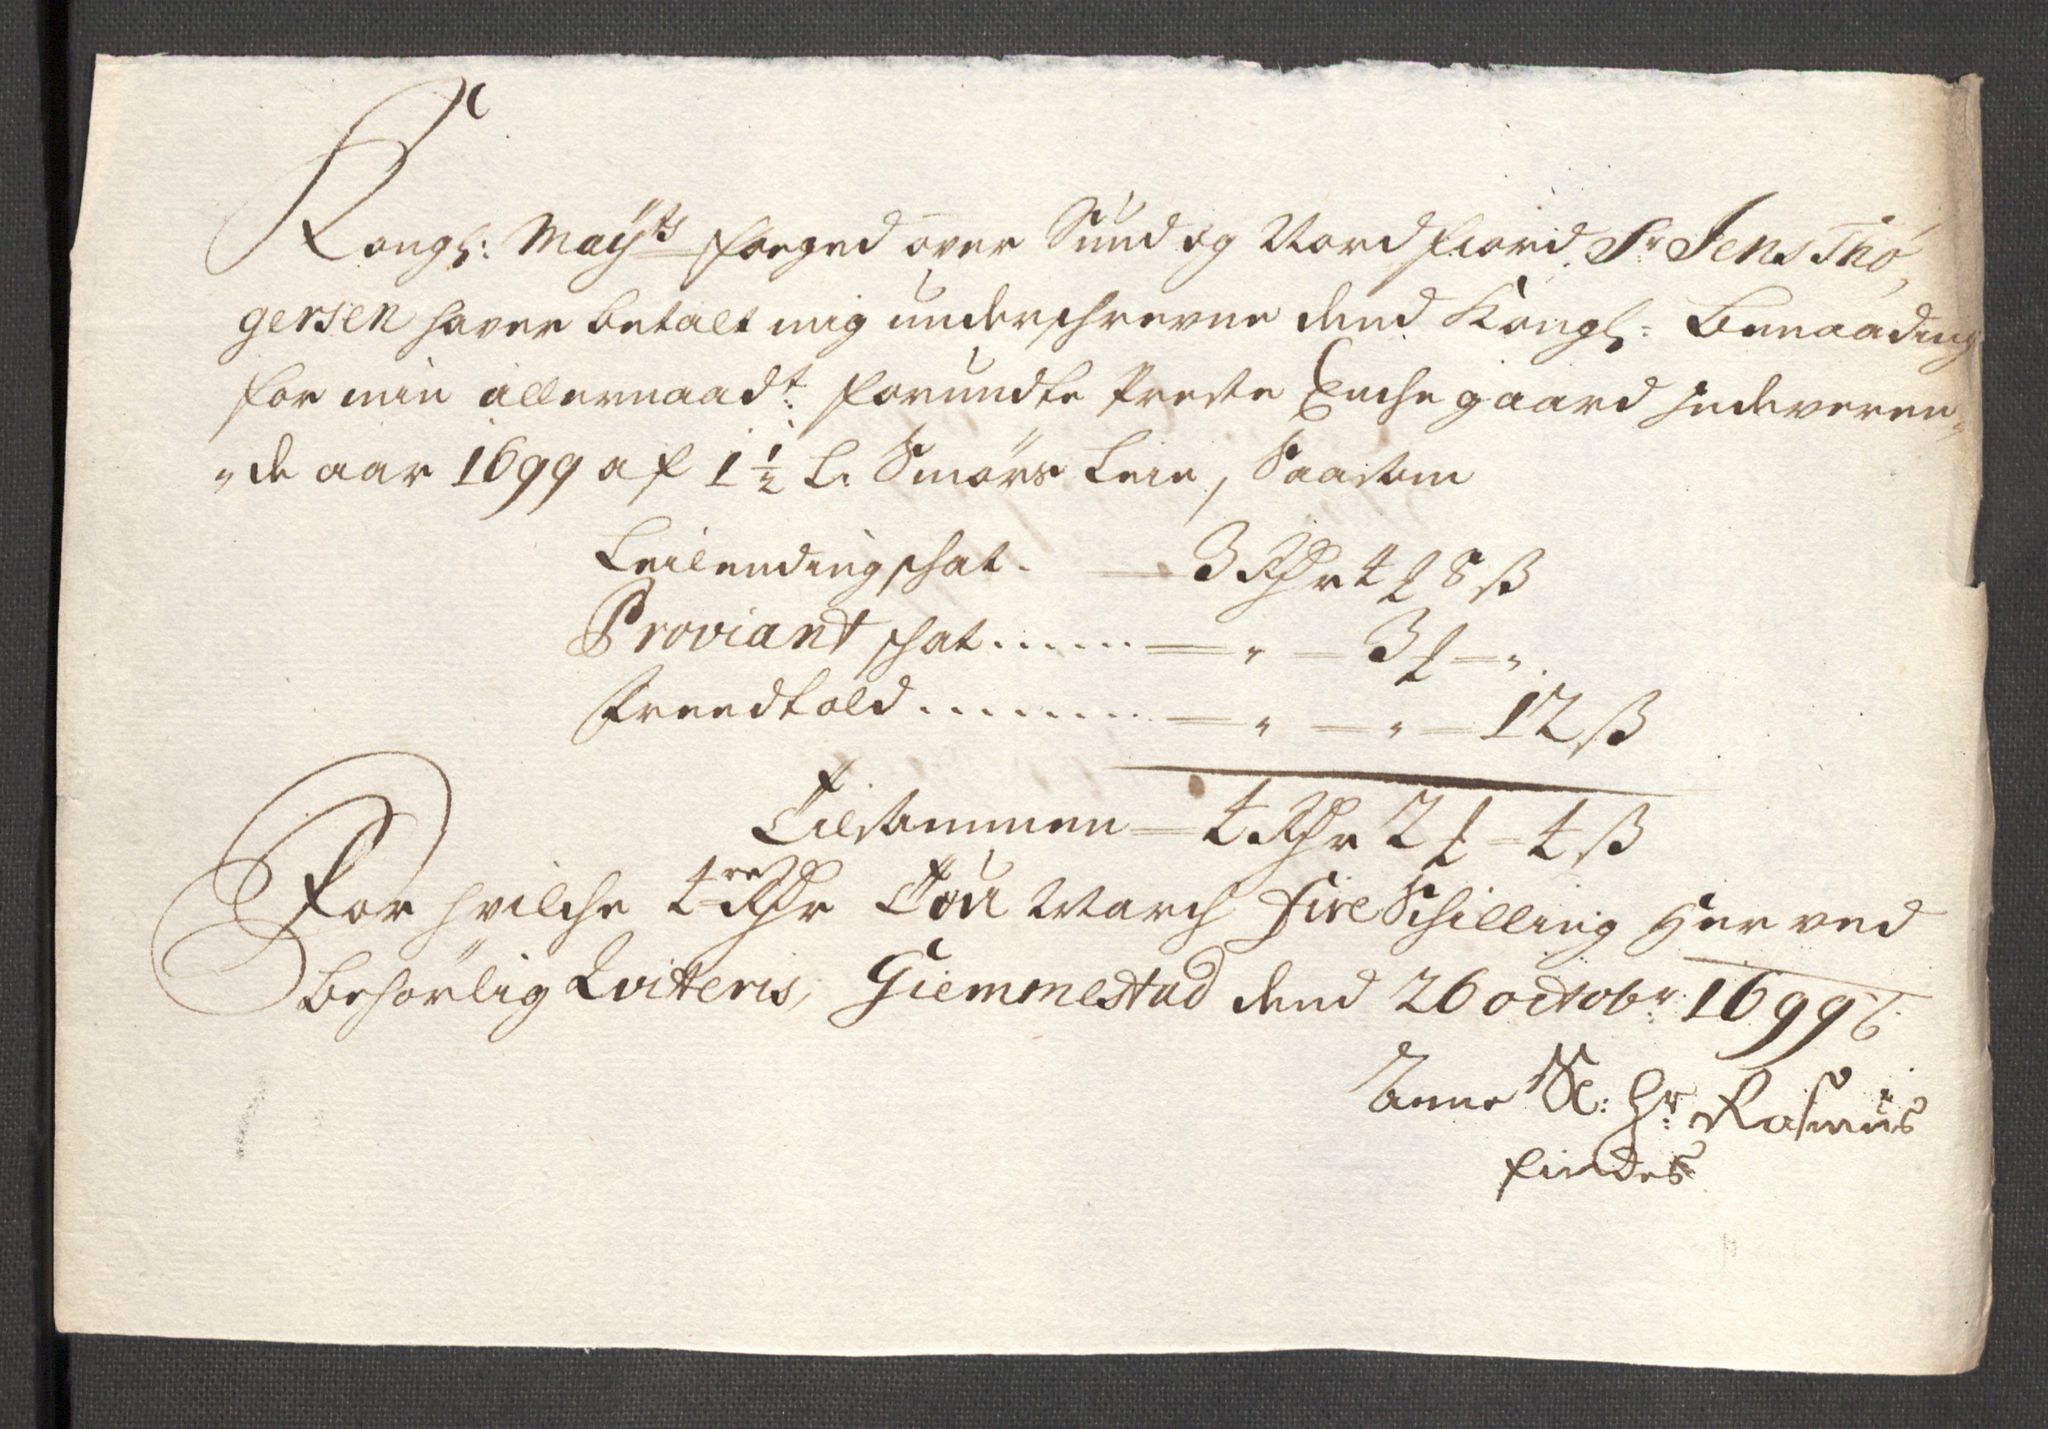 Kongl: Mayts foeged over Sund og Nordfiord Sr Jens Thø,
gersen haver betalt mig underschrevne dend Kongl: Benaading
for min allernaadt: forundte Preste Enche gaard indeveren„
„de aar 1699 af 1 1/2 L. Smørs Leie, Saasom
Leilendingschat. — 3 Rdr 4 ƒ 8 ß
Proviant schat...... — „ — 3 ƒ — „
Freedtold......... — „ — „ — 12 ß
Tilsammen — 4 Rdr 2 ƒ — 4 ß
For hvilche 4re Rdr Tou March fire Schilling Her ved
behørlig Qviteris, Giemmestad dend 26 octobr: 1699
Anne Sl: Hr: Rasmus
findes